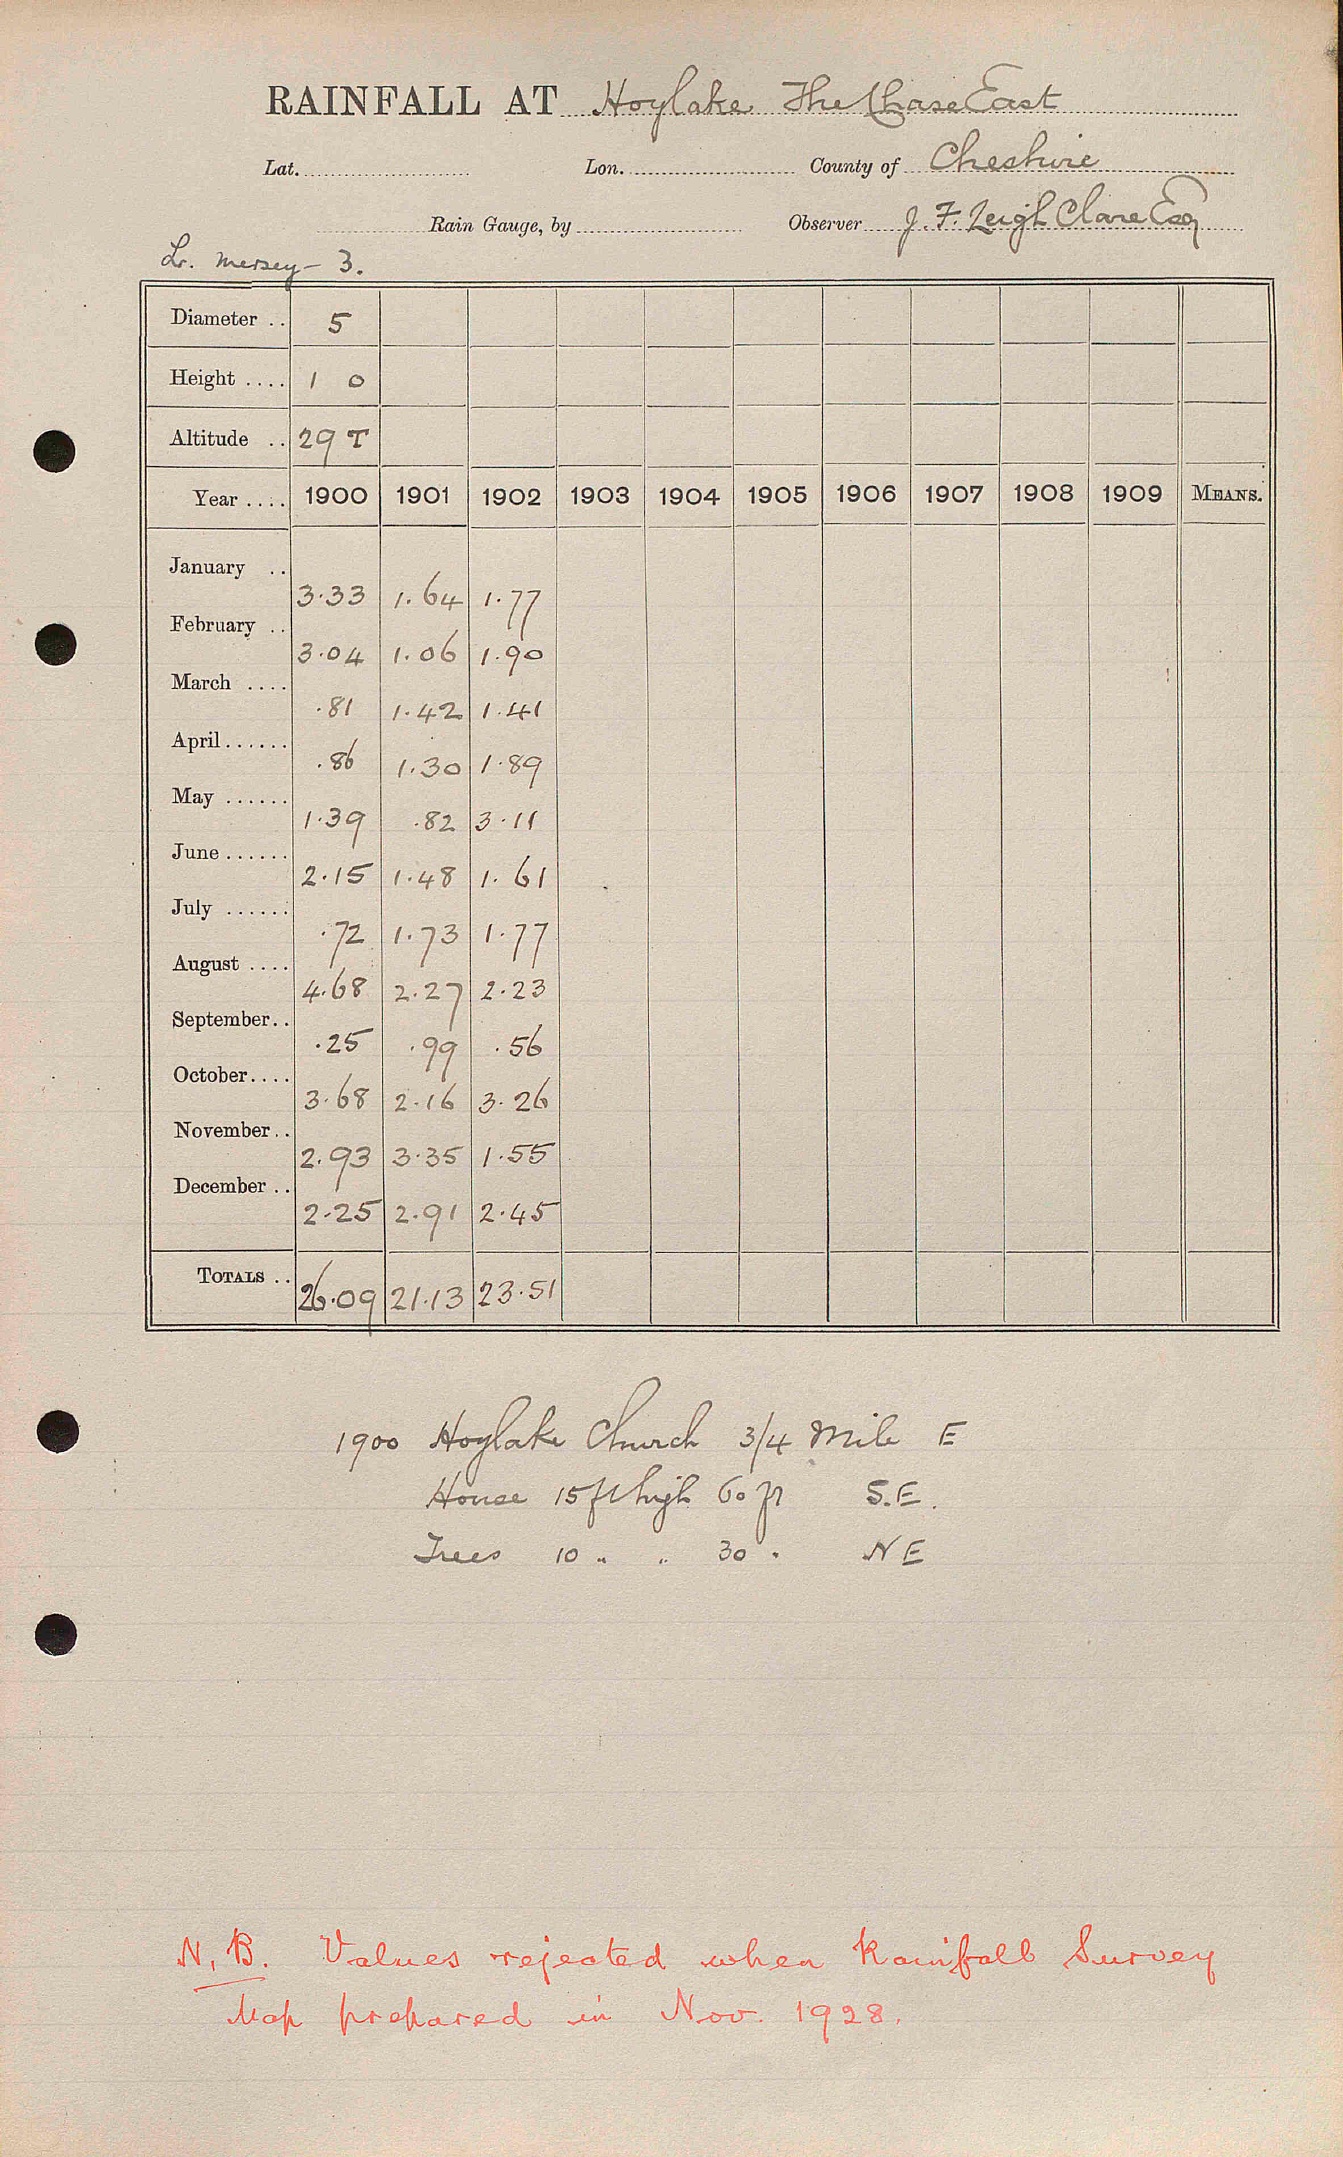 RAINFALL AT Hoylake The Chase East
Lat. Lon. County of Cheshire
Rain Gauge, by Observer J. F. Leigh Clare Esq
Lr. Mersey - 3.
Diameter .. 5
Height .... 1 0
Altitude .. 29 T
Year .... 1900 1901 1902 1903 1904 1905 1906 1907 1908 1909 MEANS.
January .. 3.33 1.64 1.77
February .. 3.04 1.06 1.90
March .... .81 1.42 1.41
April ...... .86 1.30 1.89
May ...... 1.39 .82 3.11
June ...... 2.15 1.48 1.61
July ...... .72 1.73 1.77
August .... 4.68 2.27 2.23
September.. .25 .99 .56
October.... 3.68 2.16 3.26
November.. 2.93 3.35 1.55
December .. 2.25 2.91 2.45
TOTALS .. 26.09 21.13 23.51
1900 Hoylake Church 3/4 Mile E
House 15 ft high 60 ft S.E.
Trees 10 " " 30 " NE
N.B. Values rejected when Rainfall Survey
Map prepared in Nov. 1928.